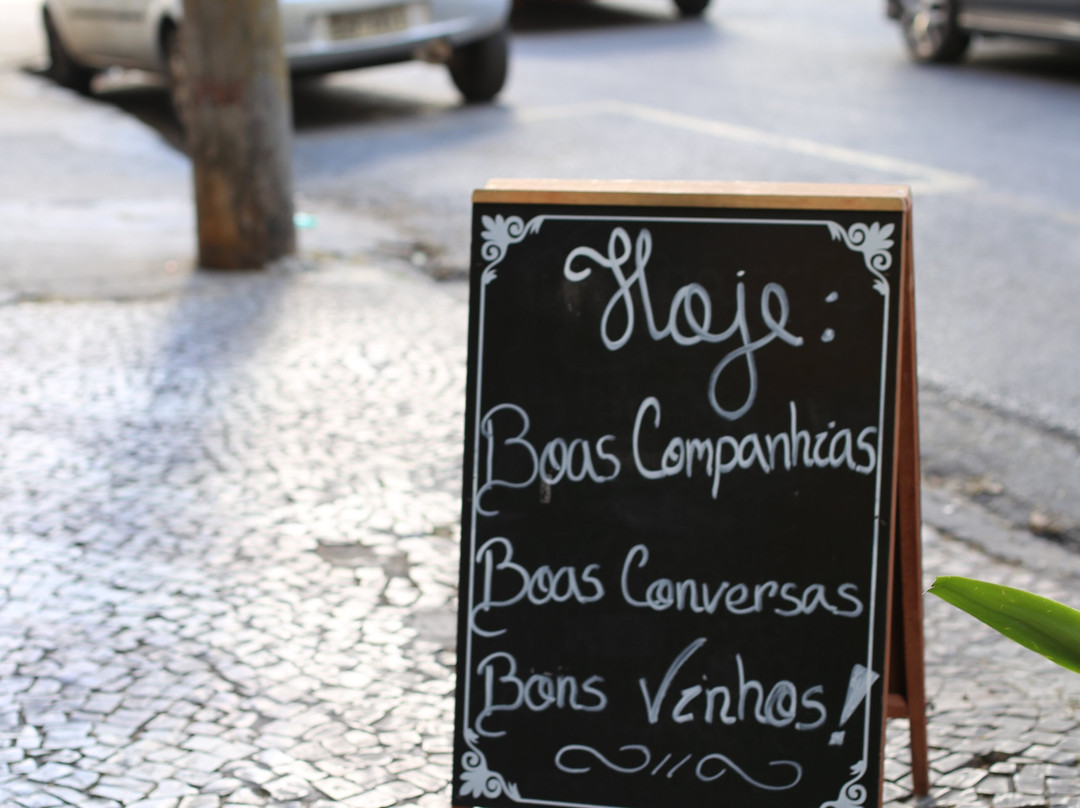 Hoje:
Boas Companhias
Boas Conversas
Bons Vinhos!